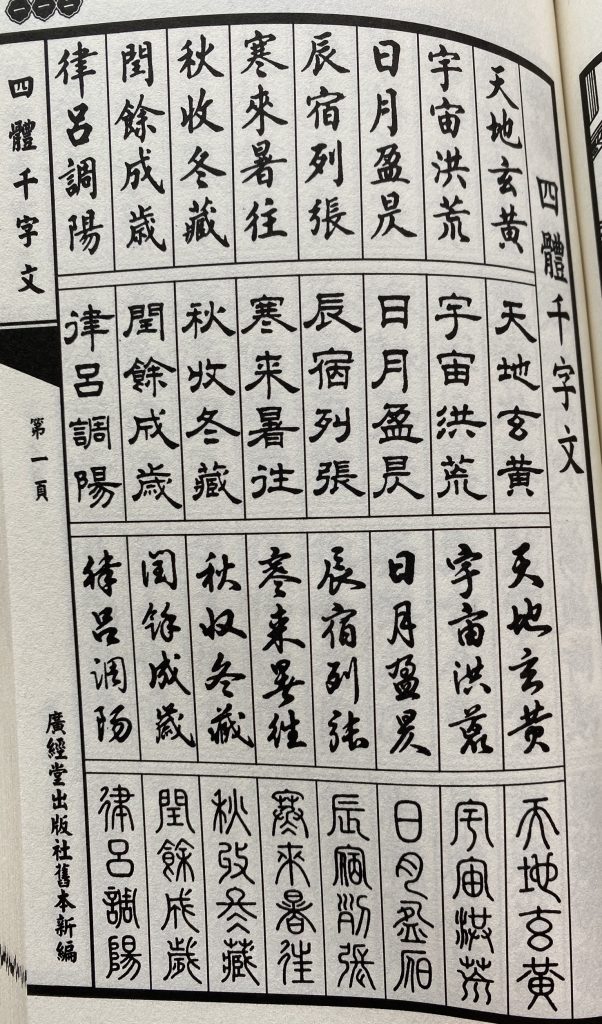 四體千字文
天地玄黃
宇宙洪荒
日月盈昃
辰宿列張
寒來暑往
秋收冬藏
閏餘成歲
律呂調陽
天地玄黃
宇宙洪荒
日月盈昃
辰宿列張
寒來暑往
秋收冬藏
閏餘成歲
律呂調陽
天地玄黃
宇宙洪荒
日月盈昃
辰宿列張
寒來暑往
秋收冬藏
閏餘成歲
律呂調陽
天地玄黃
宇宙洪荒
日月盈昃
辰宿列張
寒來暑往
秋收冬藏
閏餘成歲
律呂調陽
四體千字文
第一頁
廣經堂出版社舊本新編